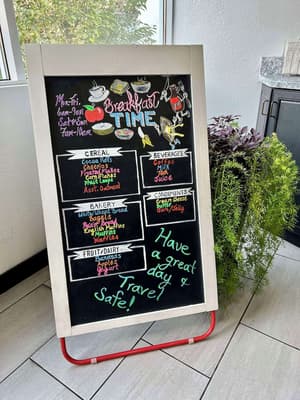 Mon-Fri.
6am-9am
Sat & Sun
7am-10am
Breakfast
TIME
CEREAL
Cocoa Puffs
Cheerios
Frosted Flakes
Corn Flakes
Fruit Loops
Asst. Oatmeal
BEVERAGES
Coffee
Milk
Tea
Juice
BAKERY
White/Wheat Bread
Bagels
English Muffins
Muffins
Waffles
CONDIMENTS
Cream Cheese
Butter
Jam/Jelly
FRUIT/DAIRY
Bananas
Apples
Yogurt
Have
a great
day &
Travel
Safe!